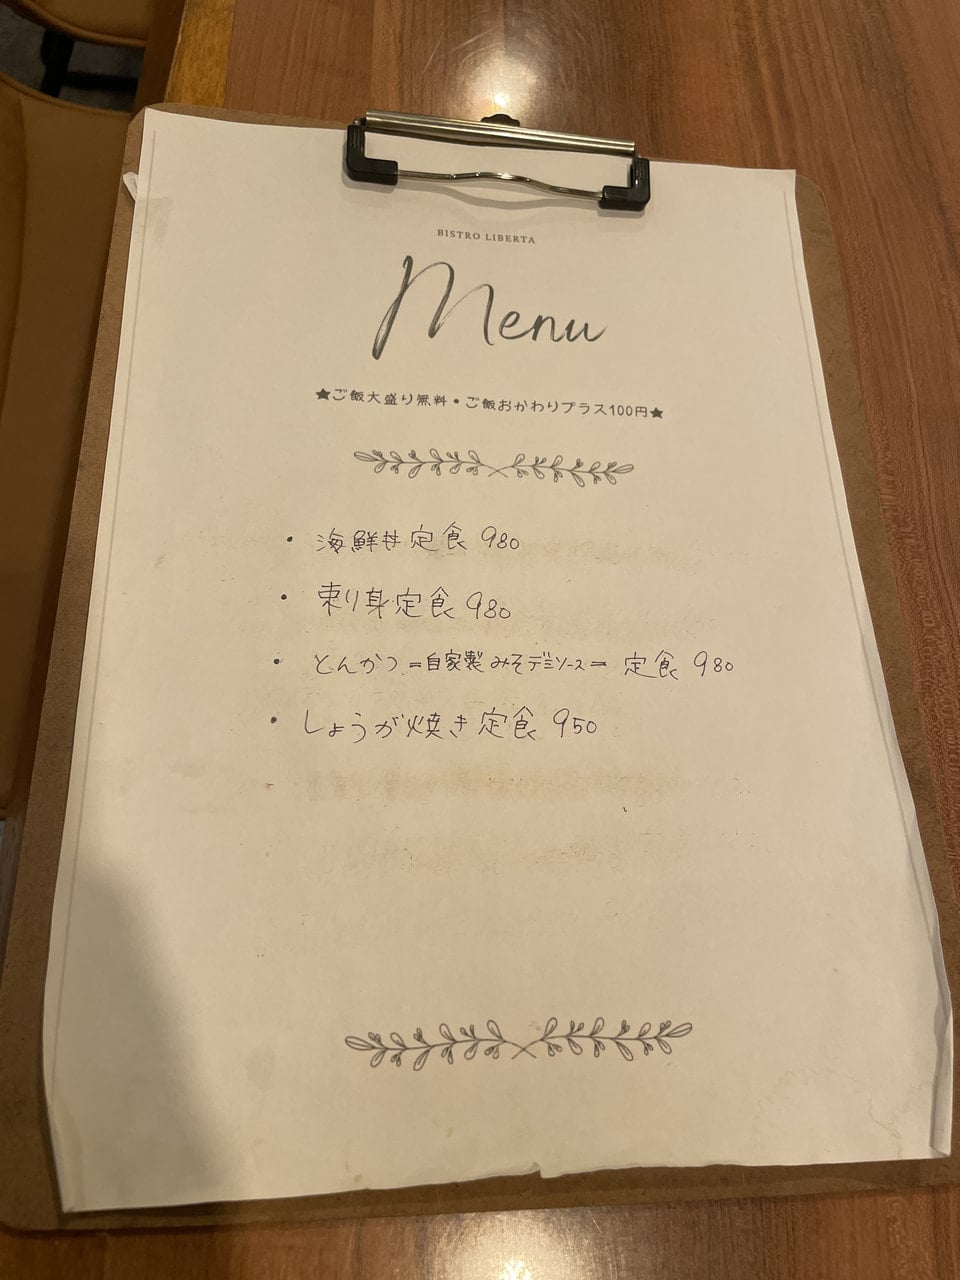 BISTRO LIBERTA
Menu
★ご飯大盛り無料・ご飯おかわりプラス100円★
・海鮮丼定食 980
・刺り身定食 980
・とんかつ=自家製みそデミソース= 定食 980
・しょうが焼き定食 950